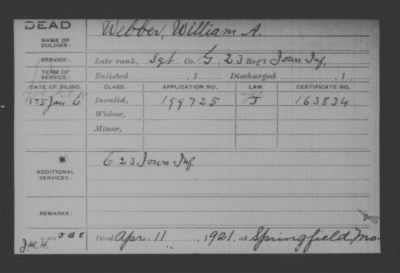 DEAD
NAME OF SOLDIER: Webber, William A.
SERVICE: Late rank, Sgt Co. G, 23 Reg't Iowa Inf,
TERM OF SERVICE: Enlisted , 1 Discharged , 1 .
DATE OF FILING. CLASS. APPLICATION NO. LAW. CERTIFICATE NO.
1895 Jan 6 Invalid, 199725 J 163834
Widow,
Minor,
ADDITIONAL SERVICES: G 23 Iowa Inf
REMARKS:
J.H.H. Died Apr. 11 , 1921, at Springfield, Mo.